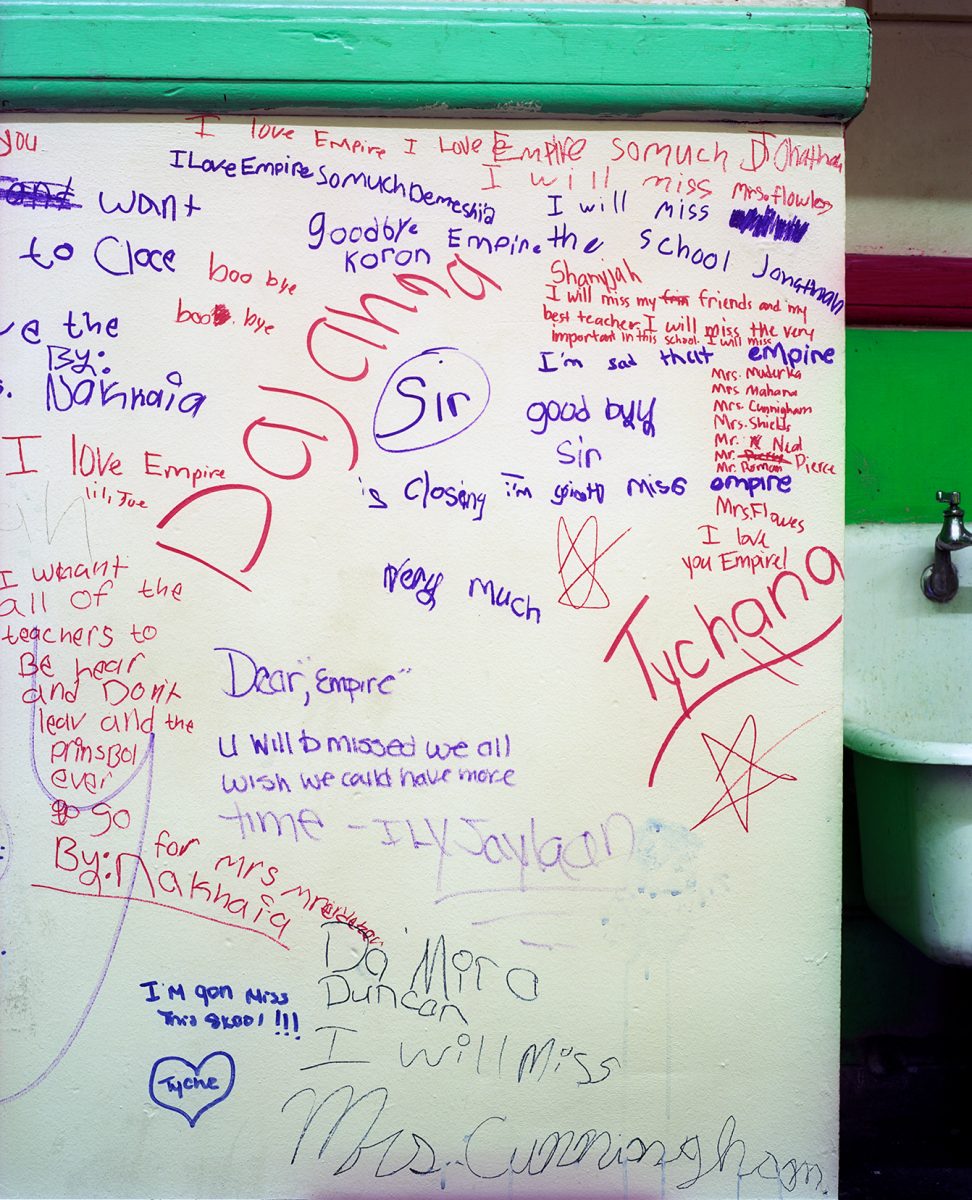 you
I love Empire I Love Empire somuch
I Love Empire Somuch Demeshia
I will miss Mrs. flowless
want
to Cloce
ve the
By:
Nakhaia
goodbye Empire
Koron
I will miss
the school Jonathan
boo bye
boo. bye
Dajchana
Shanijah
I will miss my friends and my
best teacher. I will miss the very
important in this school. I will miss
Mrs. Muderka
Mrs. Mahana
Mrs. Cunnigham
Mrs. Shields
Mr. Neal
Mr. Pierce
Mr. Roman
Mrs. Flowes
I love
you Empire!
Sir
I'm sad that empire
is closing i'm going to miss empire
very much
good byy
Sir
I love Empire
I wnant
all of the
teachers to
Be hear
and Don't
leav and the
prinsBol
ever
go
for Mrs.
By: Nakhaia
Tychana
Dear, "Empire"
u will b missed we all
wish we could have more
time - ILY Jaylaan
Da'Mira
Duncan
I will Miss
Mrs. Cunningham.
I'M gon Miss
This skool !!!
Tyche